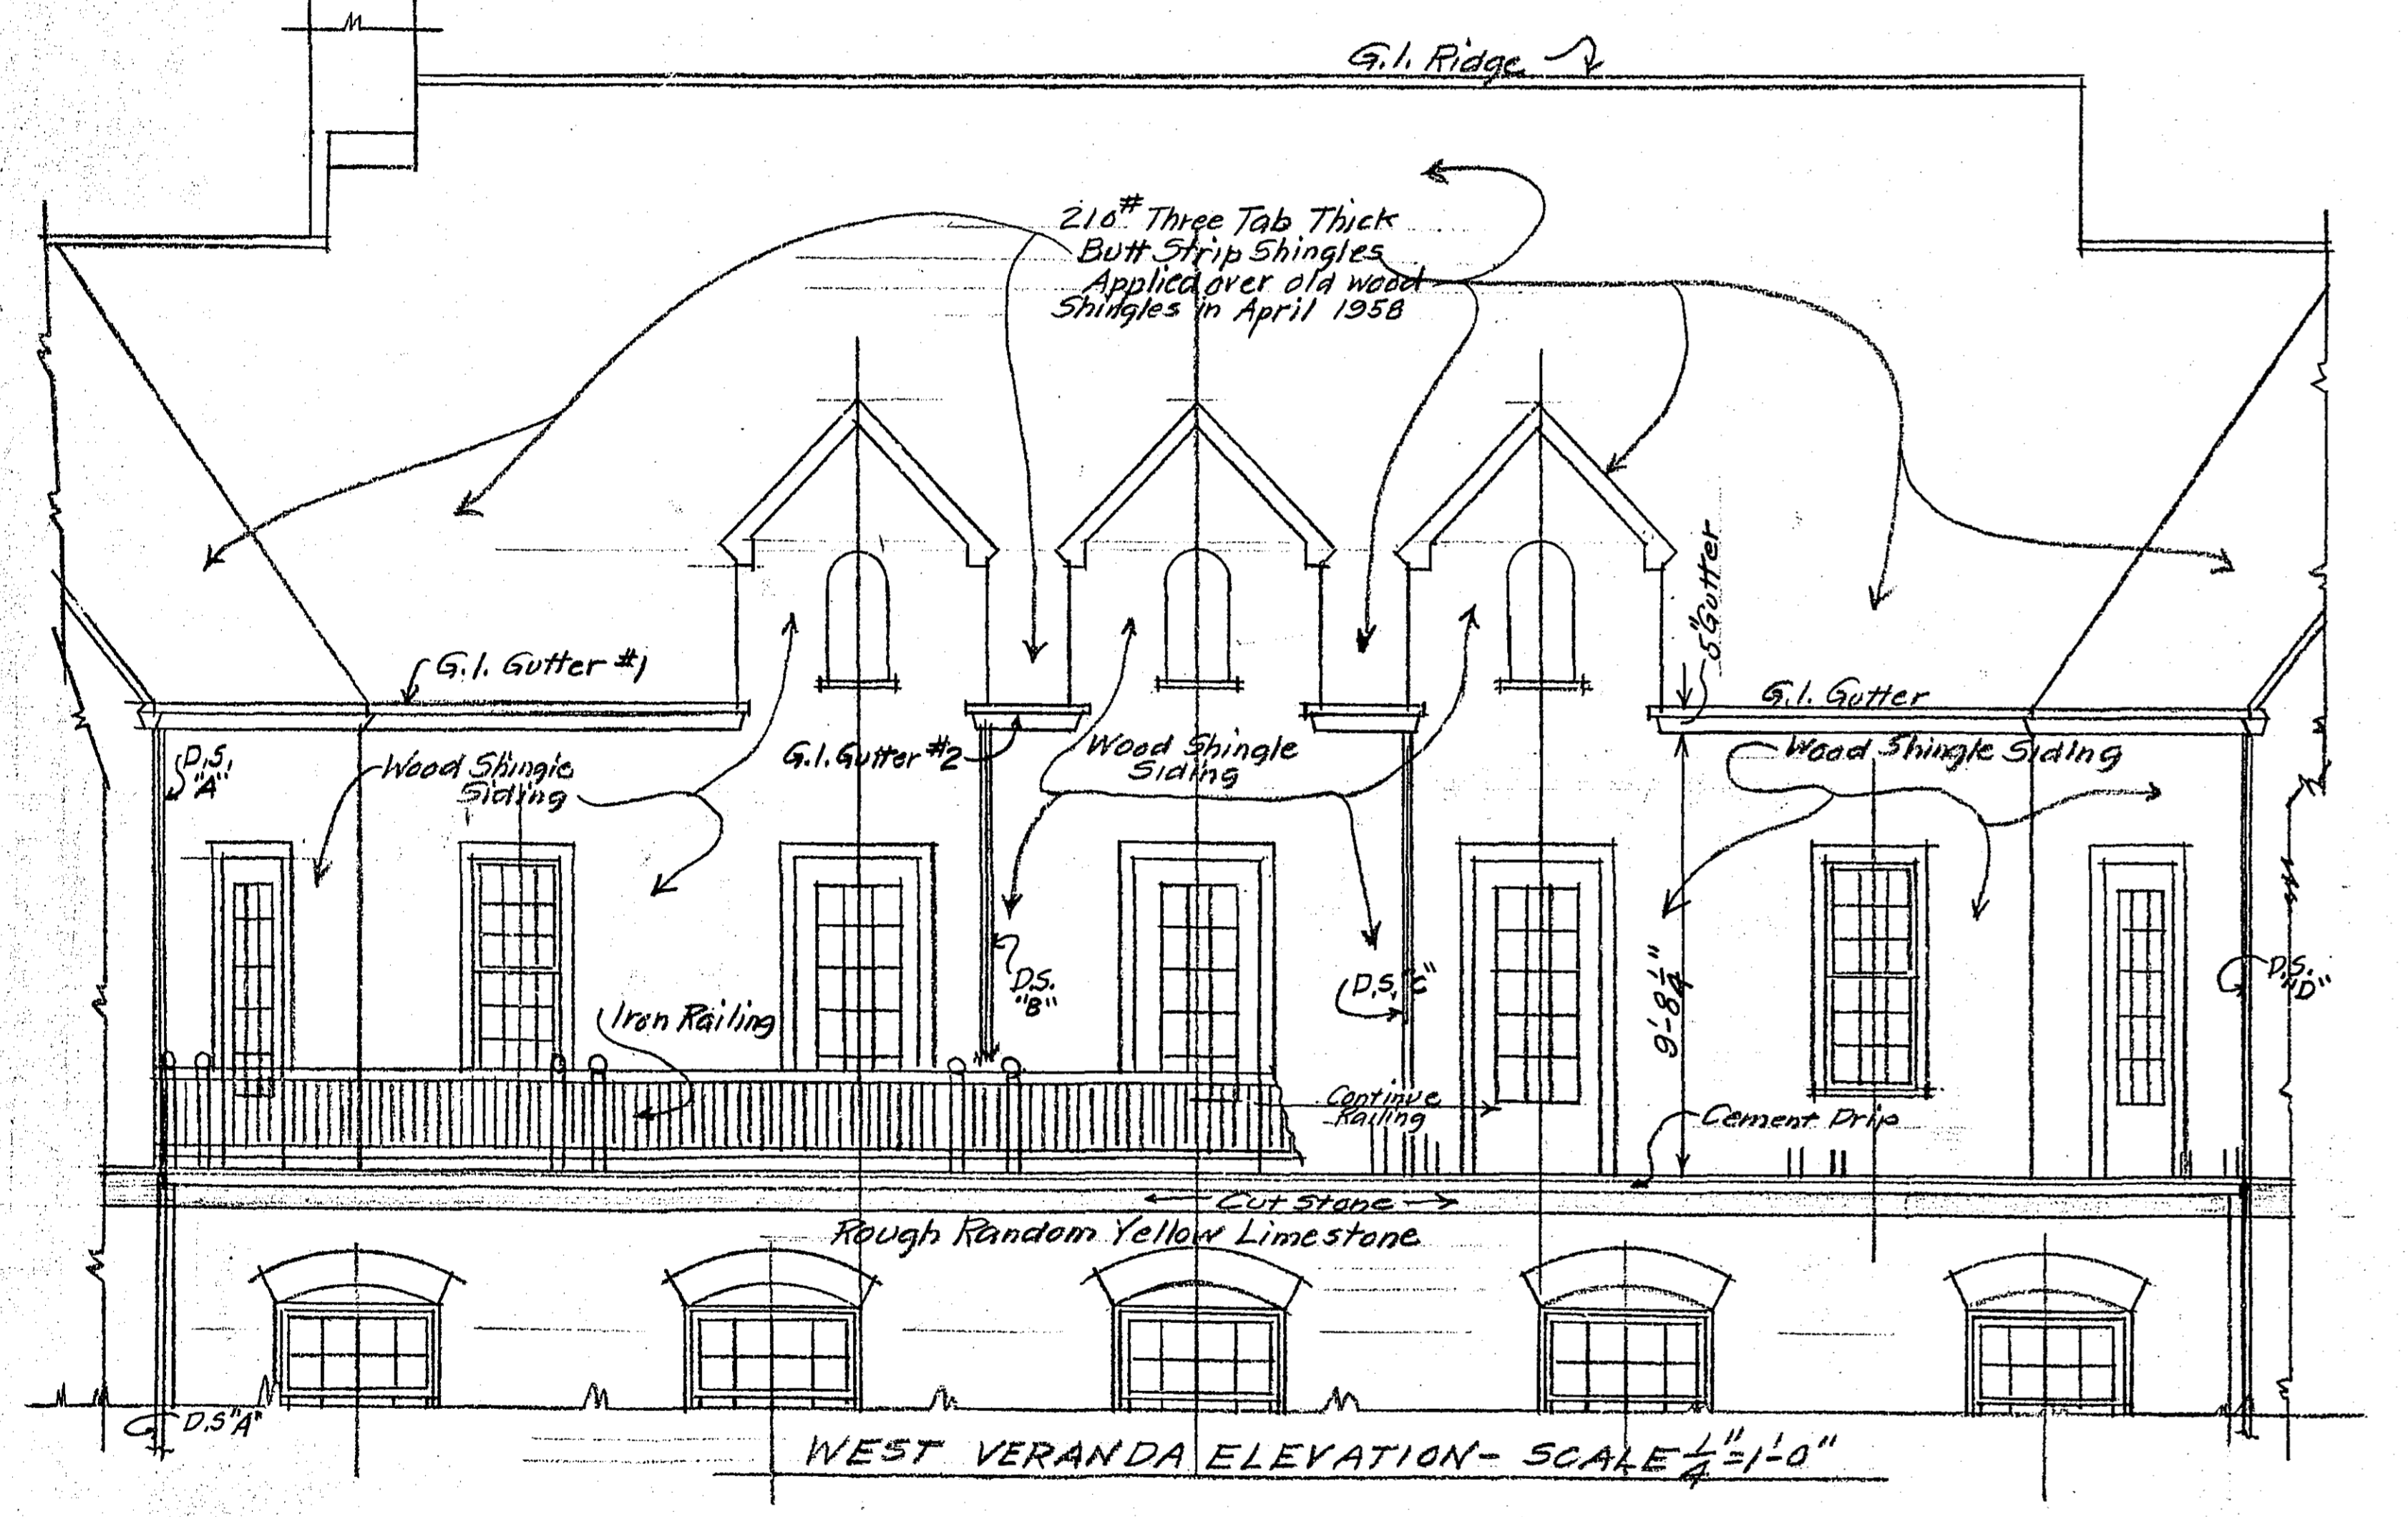 G.I. Ridge
210# Three Tab Thick
Butt Strip Shingles
Applied over old wood
Shingles in April 1958
5" Gutter
G.I. Gutter #1
G.I. Gutter
D.S.
"A"
Wood Shingle
Siding
G.I. Gutter #2
Wood Shingle
Siding
Wood Shingle Siding
D.S.
"B"
D.S. "C"
9'-8 1/4"
D.S.
"D"
Iron Railing
Continue
Railing
Cement Drip
Cut Stone
Rough Random Yellow Limestone
D.S "A"
WEST VERANDA ELEVATION - SCALE 1/4" = 1'-0"